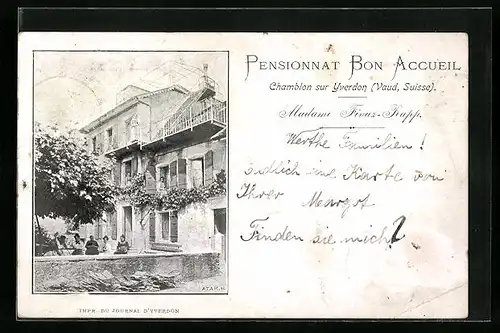 PENSIONNAT BON ACCUEIL
Chamblon sur Yverdon (Vaud, Suisse).
Madame Finaz-Rapp.
Werthe Familien!
Endlich eine Karte von
Ihrer Margot
Finden sie mich?
ATAR.G.
IMPR. DU JOURNAL D'YVERDON